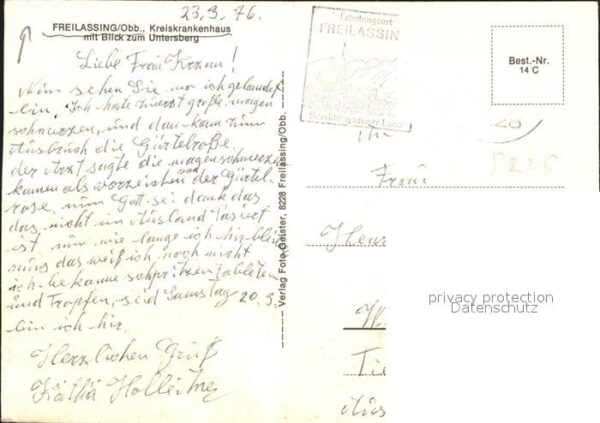 23.3.76.
FREILASSING/Obb., Kreiskrankenhaus
mit Blick zum Untersberg
Liebe Frau
Nun sehen Sie wo ich gelandet
bin. Ich hate zuerst große magen
schmerzen, und dan kam zum
Ausbruch die Gürtelroße.
der Arzt sagte die magenschmerzen
kamen als vorzeichen von der Gürtel-
rose, nun Gott sei dank das
das nicht im Ausland Pasiert
ist nun wie lange ich hir blei
muß das weiß ich noch nicht
ich bekomme schpritzen tableten
und Tropfen, seid Samstag 20.3.
bin ich hir.
Herzlichen Gruß
Käthä
Verlag Foto Geister, 8228 Freilassing/Obb.
Erholungsort
FREILASSIN
Berchtesgadener Land
Best.-Nr.
14 C
Frau
privacy protection
Datenschutz